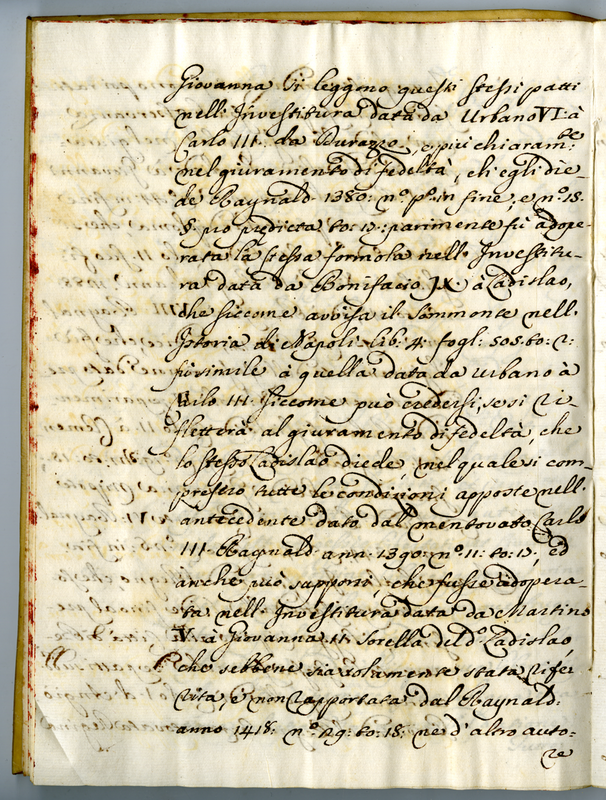 Giovanna Si leggono questi stessi patti
nell: Investitura data da Urbano VI: à
Carlo III. da Durazzo, e più chiaram:te
nel giuramento di fedeltà, ch'egli die-
de Raynald 1380: n.o p.o in fine, e n.o 18.
§. pio predicta to: 17: parimente fù adope-
rata la stessa formola nell: Investitu-
ra data da Bonifacio IX. à Ladislao,
che siccome avvisa il Sommonte nell:
Istoria di Napoli lib: 4: fogl: 505. to: 2:
fù simile à quella data da Urbano à
Carlo III. siccome può credersi, se si ri-
fletterà al giuramento di fedeltà, che
lo stesso Ladislao diede, nel quale si com-
presero tutte le condizioni apposte nell:
antecedente dato dal mentovato Carlo
III. Raynald ann. 1390: n.o 11: to: 17; ed
anche può supporsi, che fusse adopera-
ta nell: Investitura data da Martino
V: à Giovanna II. sorella del d.o Ladislao
che sebbene sia solamente stata rife-
rita, e non rapportata dal Raynald:
anno 1418: n.o 29: to: 18: ne d'altro auto=
re